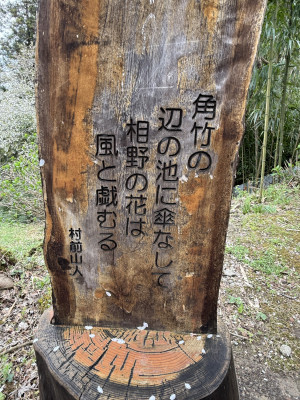 角竹の
辺の池に傘なして
相野の花は
風と戯むる
村前山人